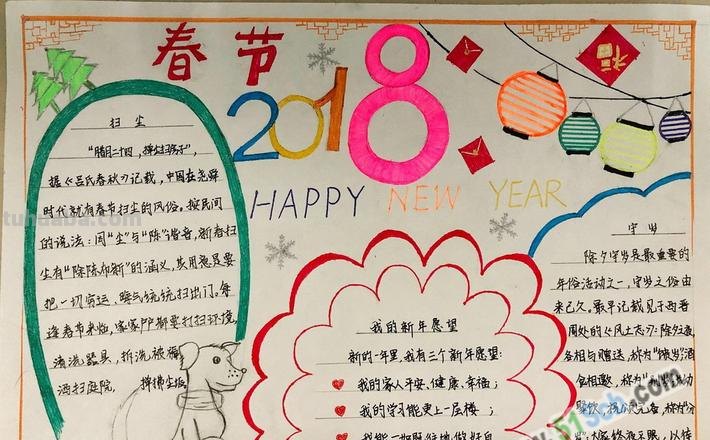 春节
福
2018
HAPPY NEW YEAR
扫尘
“腊月二十四，掸尘扫房子”，
据《吕氏春秋》记载，中国在尧舜
时代就有春节扫尘的风俗。按民间
的说法：因“尘”与“陈”谐音，新春扫
尘有“除陈布新”的涵义，其用意是要
把一切穷运、晦气统统扫出门。每
逢春节来临，家家户户都要打扫环境，
清洗器具，拆洗被褥
洒扫庭院，掸拂尘垢
我的新年愿望
新的一年里，我有三个新年愿望：
我的家人平安、健康、幸福；
我的学习能更上一层楼；
我能一如既往地做好自
守岁
除夕守岁是最重要的
年俗活动之一，守岁之俗由
来已久。最早记载见于西晋
周处的《风土志》：除夕之夜
各相与赠送，称为“馈岁”；酒
食相邀，称为
聚饮，祝颂完备，称为“分
岁”；大家终夜不眠，以待
tuhuaba.com